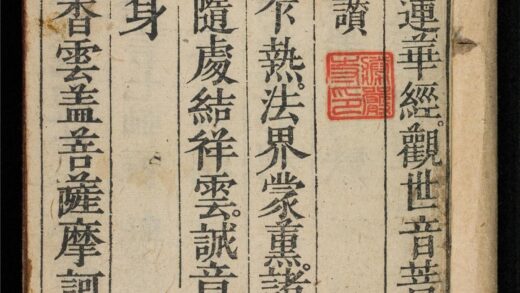 蓮華經。觀世音菩
讃
乍熱。法界蒙薰。諸
隨處結祥雲。誠音
身
香雲盖菩薩摩訶